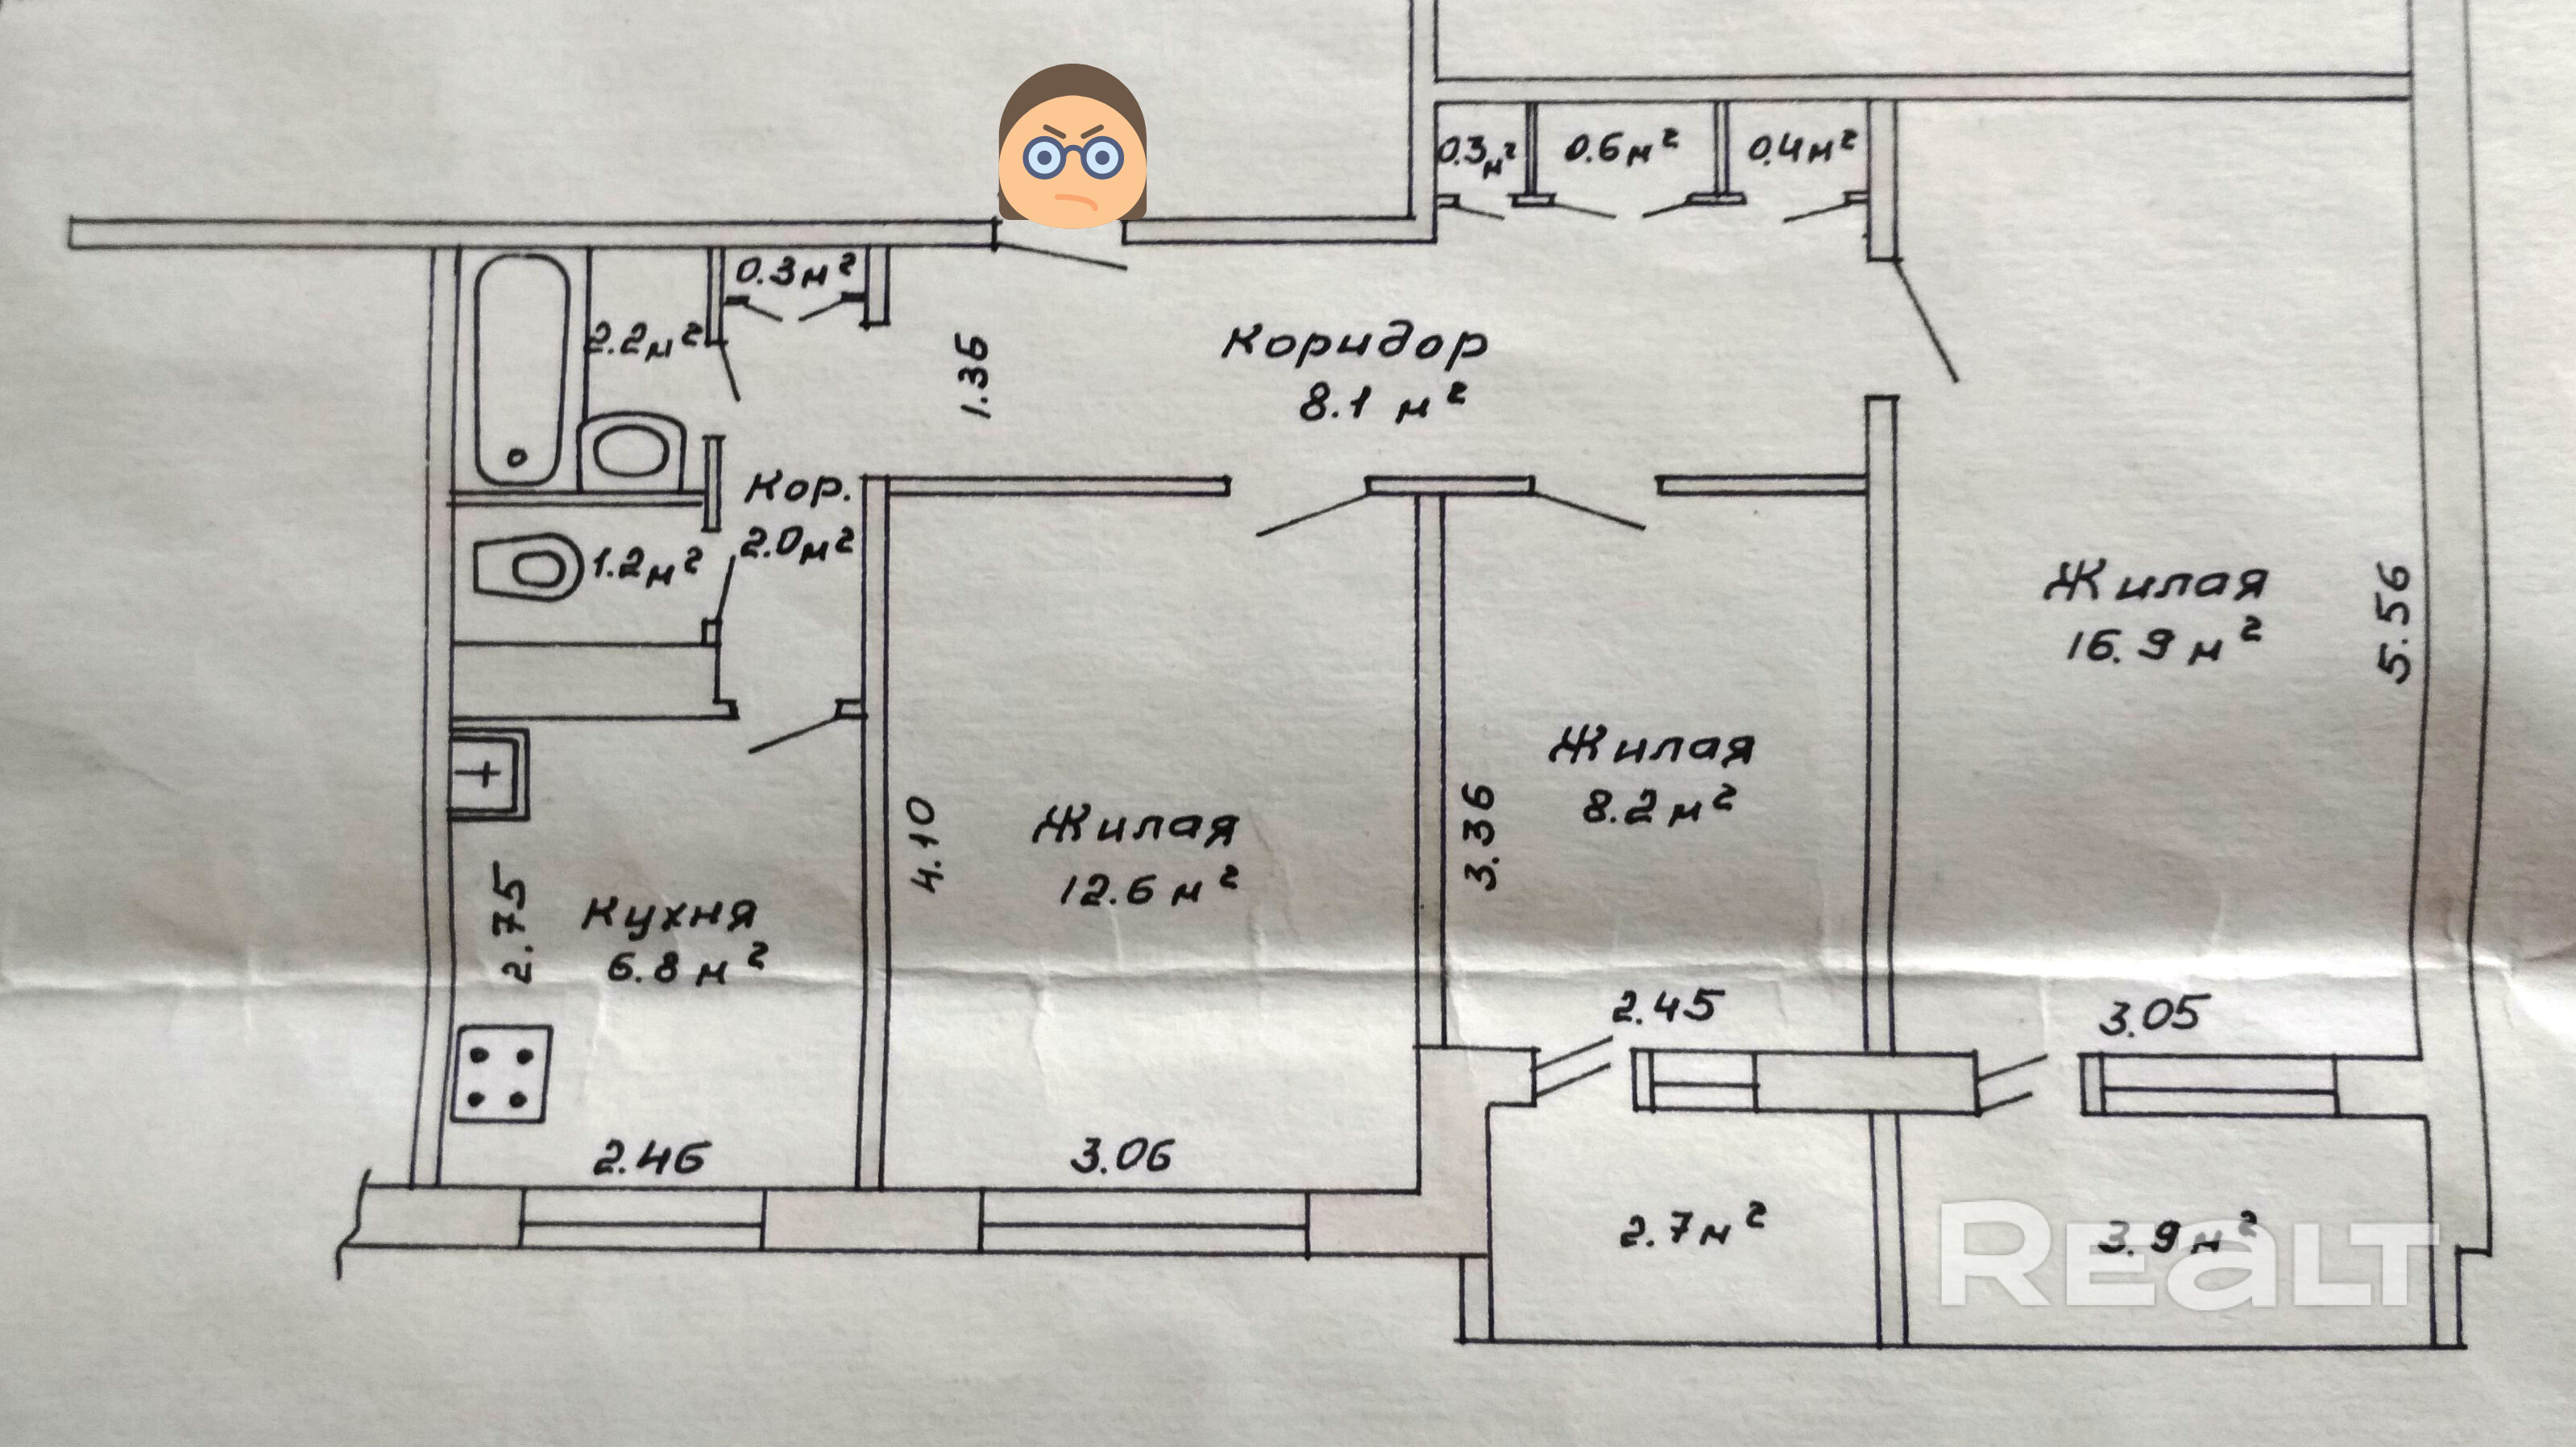 0.3 м²
0.6 м²
0.4 м²
0.3 м²
2.2 м²
1.36
Коридор
8.1 м²
Кор.
2.0 м²
1.2 м²
Жилая
16.9 м²
5.56
Жилая
8.2 м²
3.36
Жилая
12.6 м²
4.10
Кухня
6.8 м²
2.75
2.45
3.05
2.46
3.06
2.7 м²
3.9 м²
Realt